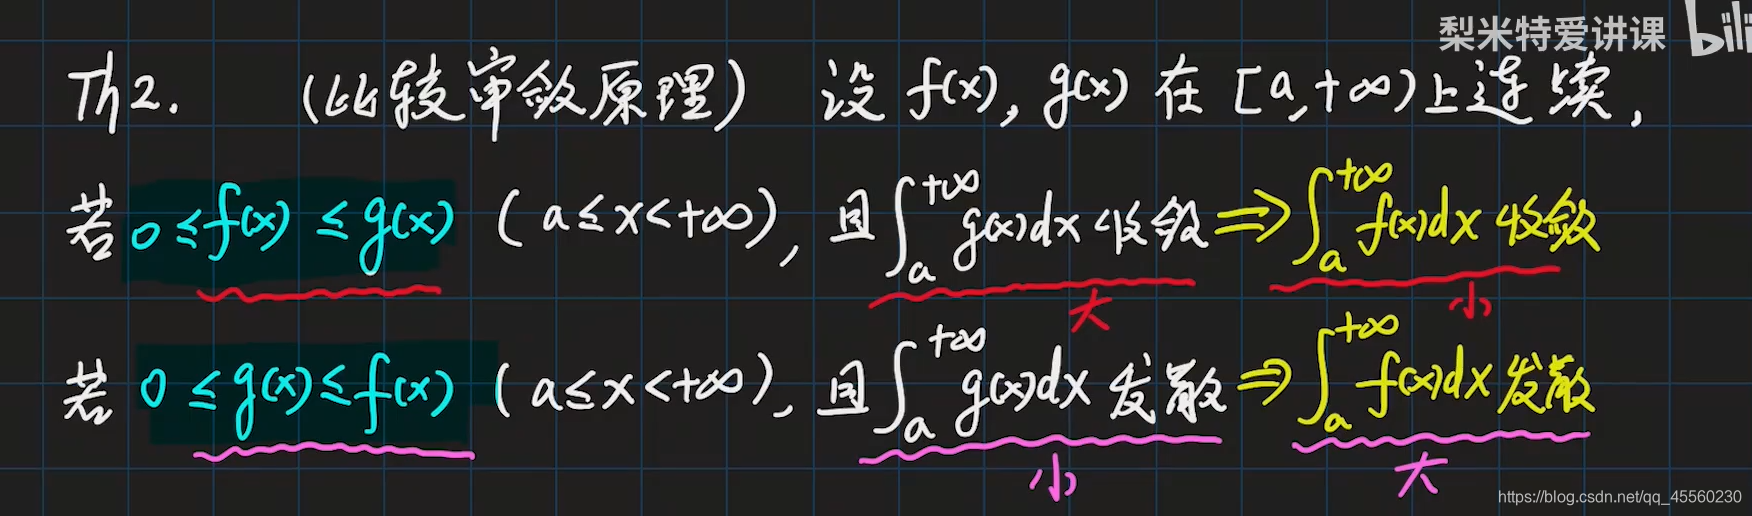 梨米特爱讲课 bili
Th2. (比较审敛原理) 设 f(x), g(x) 在 [a,+∞)上连续,
若 0≤f(x)≤g(x) (a≤x<+∞), 且∫_a^{+∞} g(x)dx 收敛 ⇒ ∫_a^{+∞} f(x)dx 收敛
大 小
若 0≤g(x)≤f(x) (a≤x<+∞), 且∫_a^{+∞} g(x)dx 发散 ⇒ ∫_a^{+∞} f(x)dx 发散
小 大
https://blog.csdn.net/qq_45560230